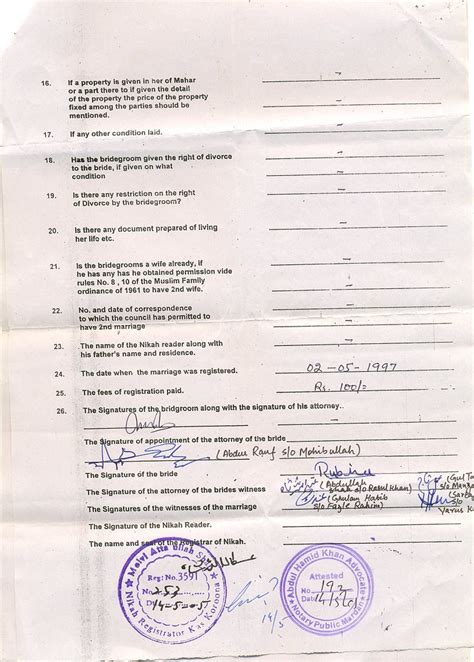 16. If a property is given in her of Mahar
or a part there to if given the detail
of the property the price of the property
fixed among the parties should be
mentioned.
17. If any other condition laid.
18. Has the bridegroom given the right of divorce
to the bride, if given on what
condition
19. Is there any restriction on the right
of Divorce by the bridegroom?
20. Is there any document prepared of living
her life etc.
21. Is the bridegrooms a wife already, if
he has any has he obtained permission vide
rules No. 8 , 10 of the Muslim Family
ordinance of 1961 to have 2nd wife.
22. No. and date of correspondence
to which the council has permitted to
have 2nd marriage
23. The name of the Nikah reader along with
his father's name and residence.
24. The date when the marriage was registered. 02-05-1997
25. The fees of registration paid. Rs. 100/-
26. The Signatures of the bridgroom along with the signature of his attorney..
The Signature of appointment of the attorney of the bride
(Abdur Rauf s/o Mohibullah)
The Signature of the bride Rubina
The Signature of the attorney of the brides witness (Abdullah Shah s/o Rasul Khan)
The Signatures of the witnesses of the marriage (Ghulam Habib s/o Fazle Rahim)
The Signature of the Nikah Reader.
The name and seal of the Registrar of Nikah.
Molvi Atta ullah Shah
Reg: No. 3591
No. 253
14-5-05
Nikah Registrator Kas Koroona
14/5
Abdul Hamid Khan Advocate
Attested
No. 192
Notary Public Mardan